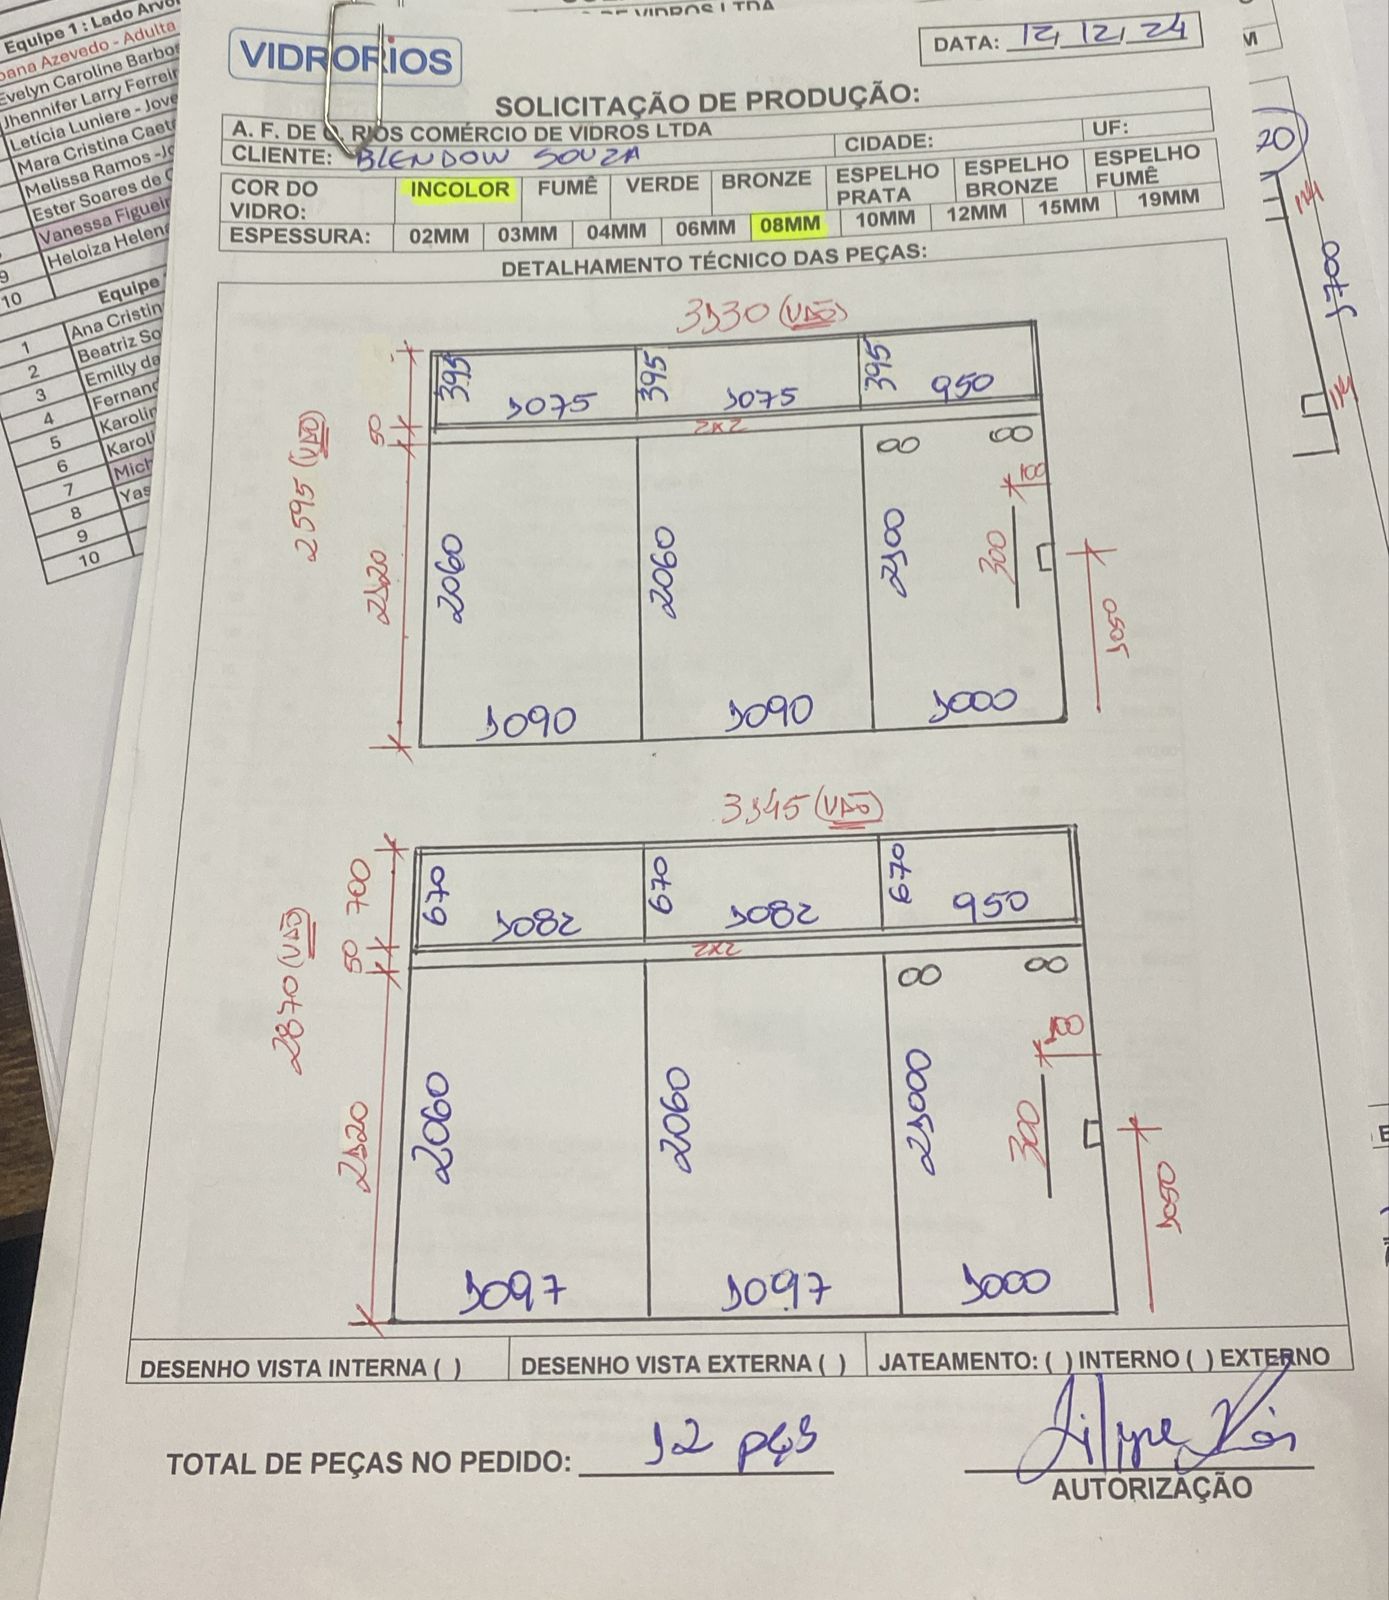 DE VIDROS LTDA
Equipe 1 : Lado Arvo
oana Azevedo - Adulta
Evelyn Caroline Barbo
Jhennifer Larry Ferreir
Letícia Luniere - Jove
Mara Cristina Caeta
Melissa Ramos -Jo
Ester Soares de
Vanessa Figueir
9 Heloiza Helena
10
Equipe
1 Ana Cristin
2 Beatriz So
3 Emilly da
4 Fernand
5 Karolin
6 Karoli
7 Mich
8 Yas
9
10
VIDRORIOS
DATA: 12/12/24
SOLICITAÇÃO DE PRODUÇÃO:
A. F. DE O. RIOS COMÉRCIO DE VIDROS LTDA
CLIENTE: BLENDOW SOUZA CIDADE: UF:
COR DO VIDRO: INCOLOR FUMÊ VERDE BRONZE ESPELHO PRATA ESPELHO BRONZE ESPELHO FUMÊ
ESPESSURA: 02MM 03MM 04MM 06MM 08MM 10MM 12MM 15MM 19MM
DETALHAMENTO TÉCNICO DAS PEÇAS:
3130 (VÃO)
395 1075 395 1075 395 950
50 2x2
2595 (VÃO)
2120 2060 2060 2100 300 100 1050
1090 1090 1000
3145 (VÃO)
700 670 1082 670 1082 670 950
50 2x2
2870 (VÃO)
2120 2060 2060 21000 300 100 1050
1097 1097 1000
DESENHO VISTA INTERNA ( ) DESENHO VISTA EXTERNA ( ) JATEAMENTO: ( ) INTERNO ( ) EXTERNO
TOTAL DE PEÇAS NO PEDIDO: 12 pçs
Filype Rios
AUTORIZAÇÃO
M
70
1700
E